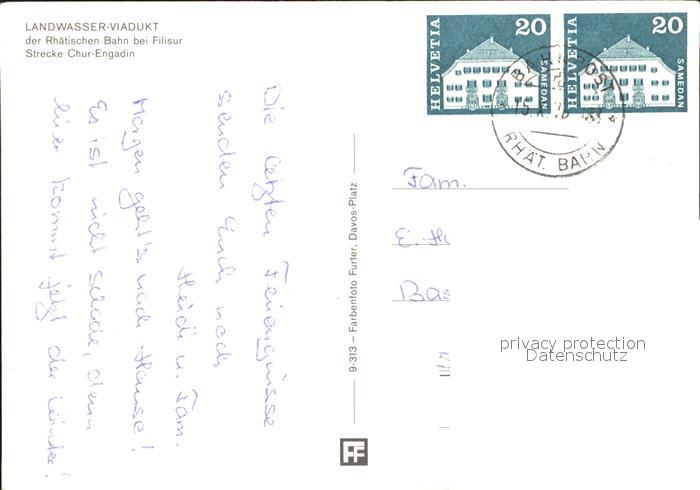 LANDWASSER-VIADUKT
der Rhätischen Bahn bei Filisur
Strecke Chur-Engadin
HELVETIA 20 SAMEDAN
HELVETIA 20 SAMEDAN
BAHNPOST
RHÄT. BAHN
Die letzten Feriengrüsse
senden Euch noch
Heidi u. Fam.
Morgen geht's nach Hause!
Es ist nicht schade, denn
hier kommt jetzt der Winter!
9-313 – Farbenfoto Furter, Davos-Platz
FF
Fam.
E. H
Bas
privacy protection
Datenschutz